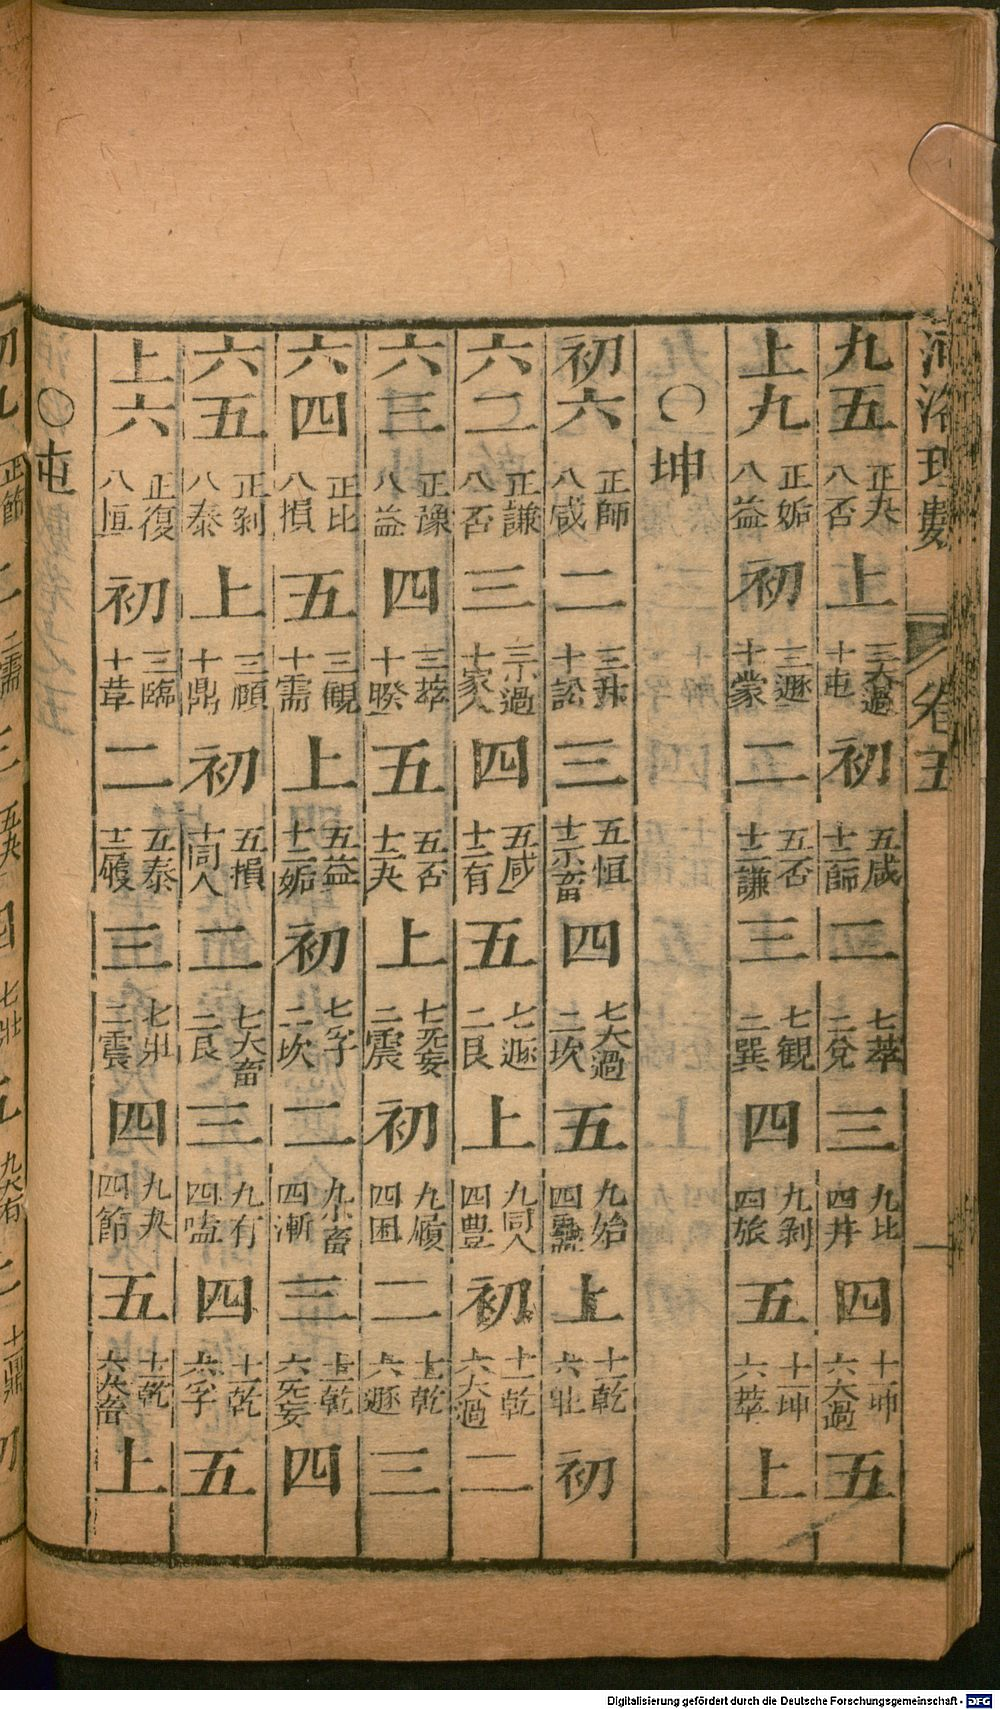 河洛理數 卷五
九五 正夬 八否 上 三大過 十屯 初 五咸 十二師 二 七萃 二兌 三 九比 四井 四 十一坤 六大過 五
上九 正姤 八益 初 三遯 十蒙 二 五否 十二謙 三 七観 二巽 四 九剝 四旅 五 十一坤 六萃 上
〇坤
初六 正師 八咸 二 三升 十訟 三 五恒 十二小畜 四 七大過 二坎 五 九姤 四 上 十一乾 六壯 初
六二 正謙 八否 三 三小過 十家人 四 五咸 十二有 五 七遯 二艮 上 九同人 四豐 初 十一乾 六大過 二
六三 正豫 八益 四 三萃 十睽 五 五否 十二夬 上 七无妄 二震 初 九履 四困 二 十一乾 六遯 三
六四 正比 八損 五 三観 十需 上 五益 十二姤 初 七孚 二坎 二 九小畜 四漸 三 十一乾 六无妄 四
六五 正剝 八泰 上 三頤 十鼎 初 五損 十二同人 二 七大畜 二艮 三 九有 四嗑 四 十一乾 六孚 五
上六 正復 八恒 初 三臨 十革 二 五泰 十二履 三 七壯 二震 四 九夬 四節 五 十一乾 六大畜 上
〇屯
初九 正節 二 三需 三 五夬 四 七壯 五 九大有 上 十一鼎 初
Digitalisierung gefördert durch die Deutsche Forschungsgemeinschaft - DFG